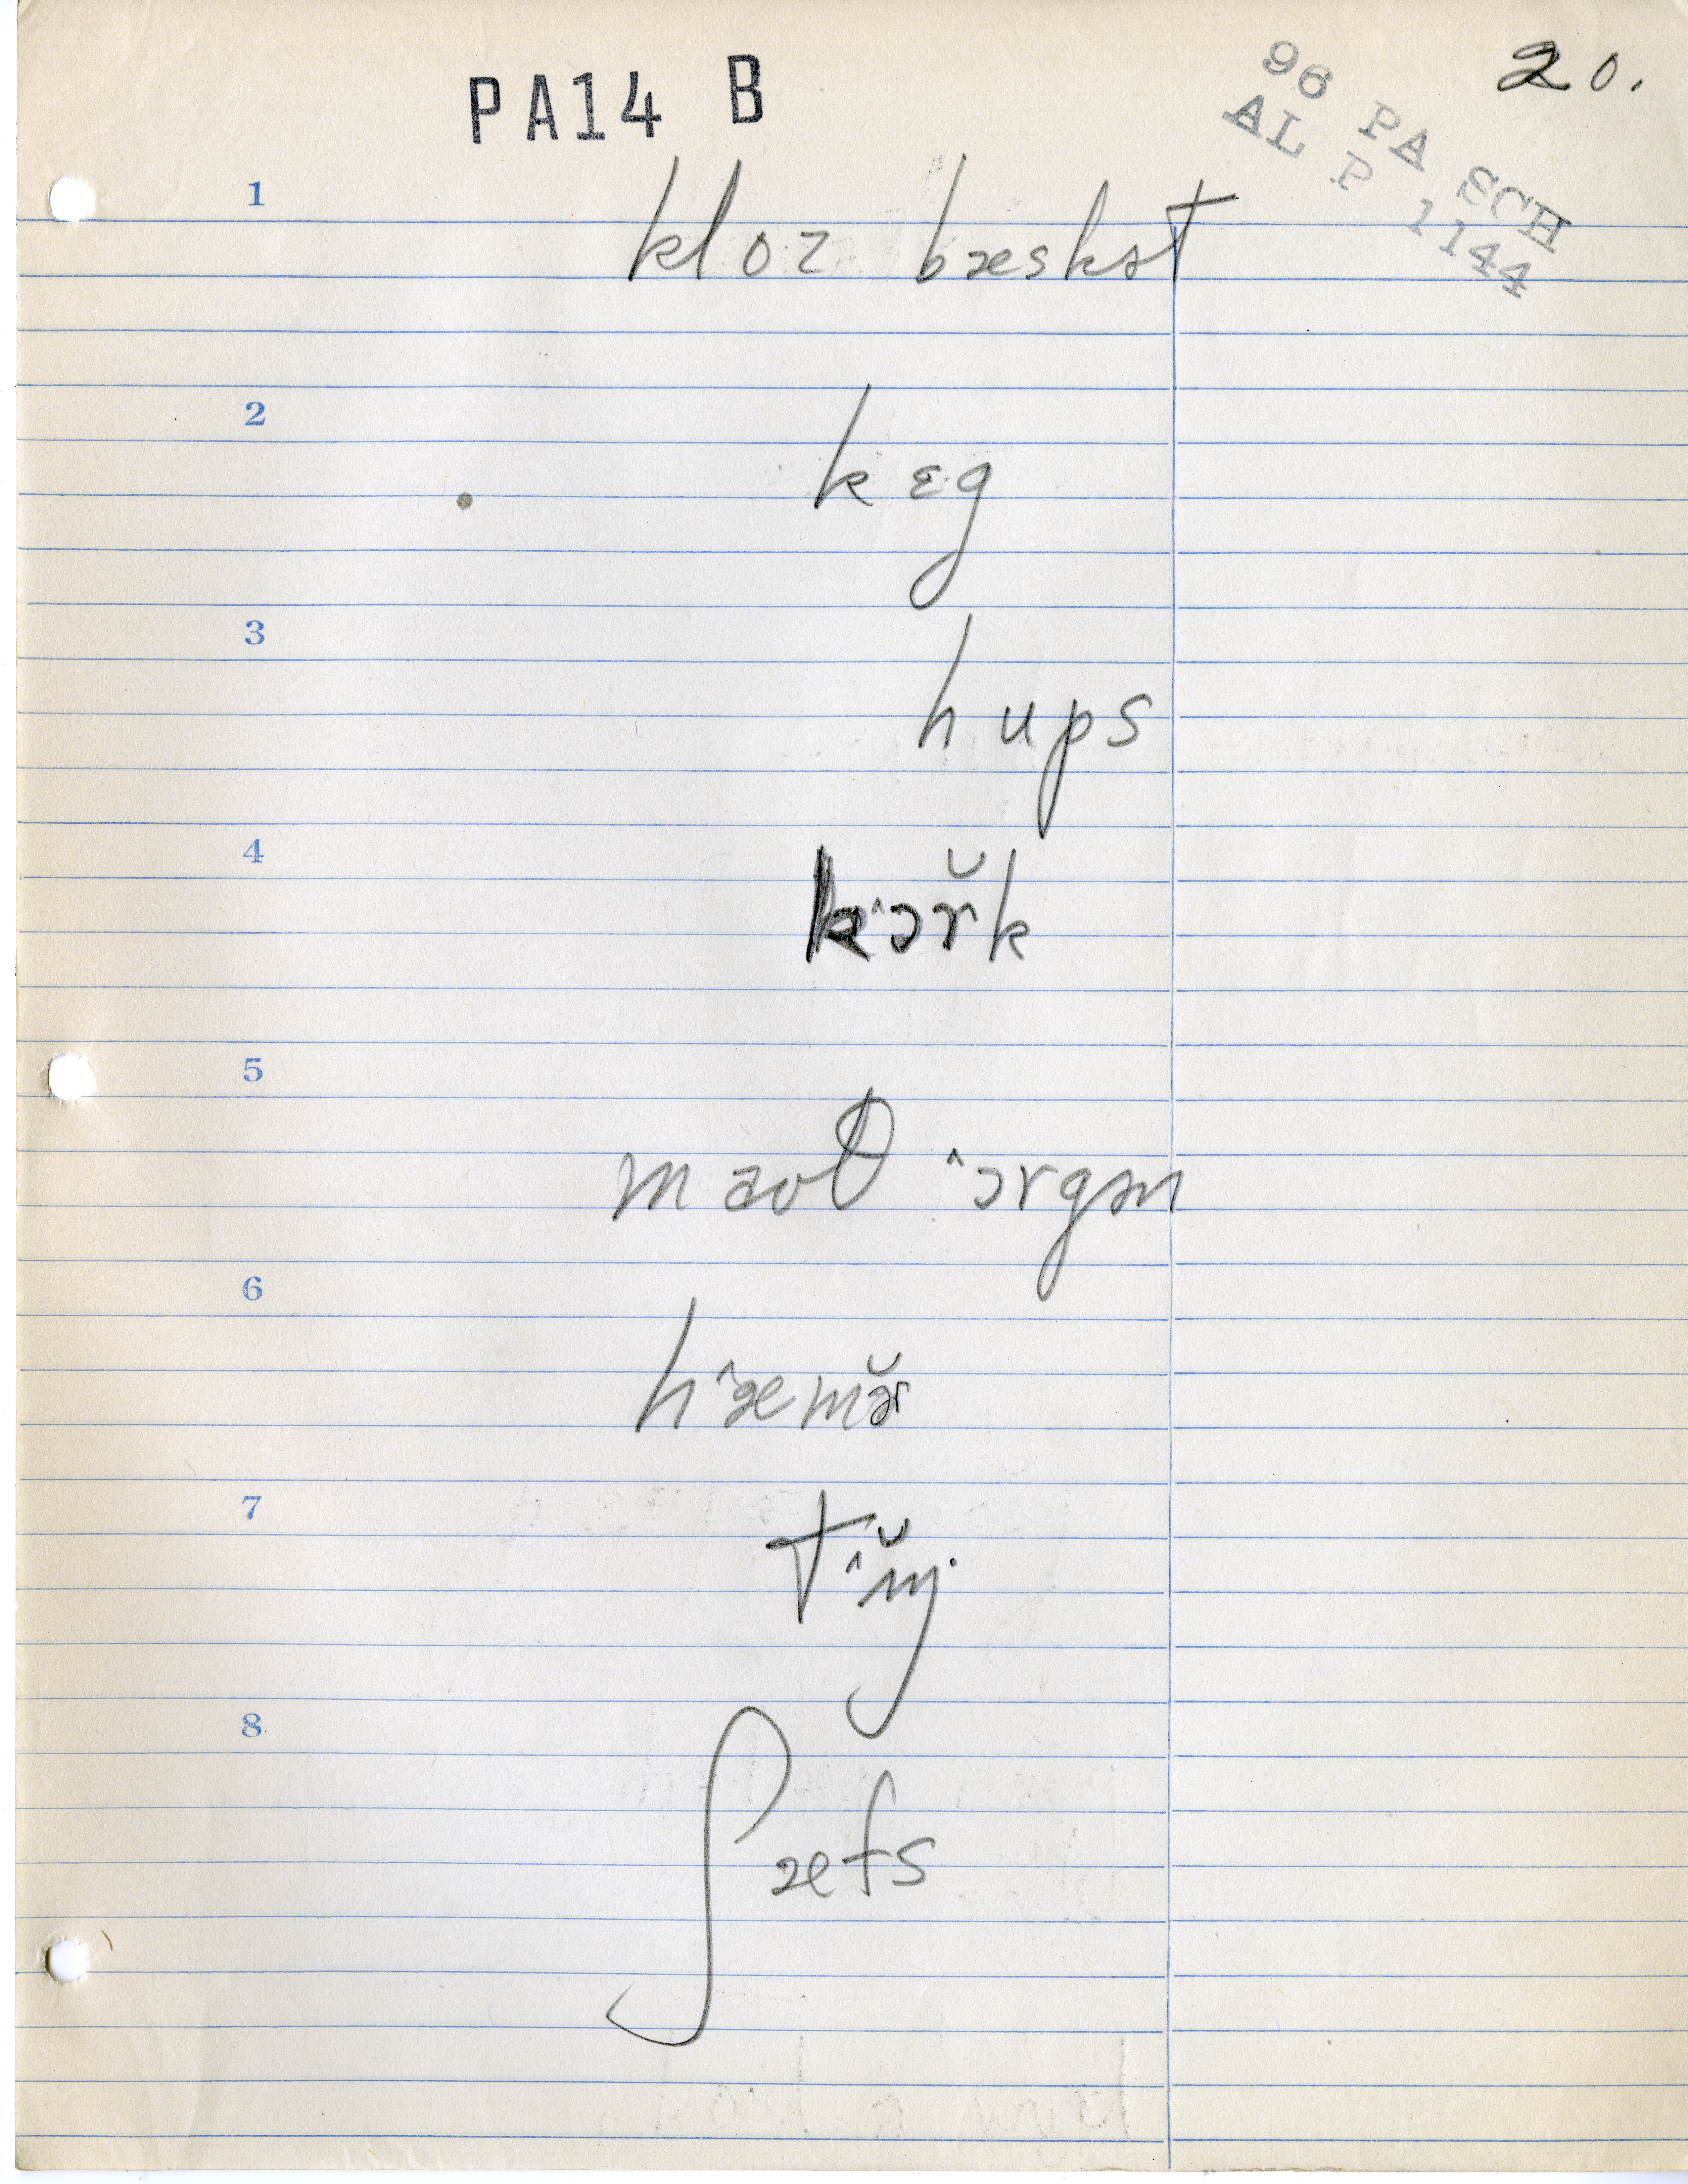 PA14 B
20.
96 PA SCH
AL P 1144
1
kloz bæskət
2
kɛg
3
hups
4
k^ɔr̆k
5
maʊθ ^ɔrgən
6
h^æmə̆r
7
t^ɪ̆nj
8
ʃæfs